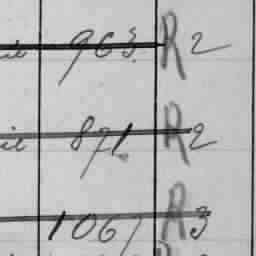 963 R2
871 R2
1061 R3